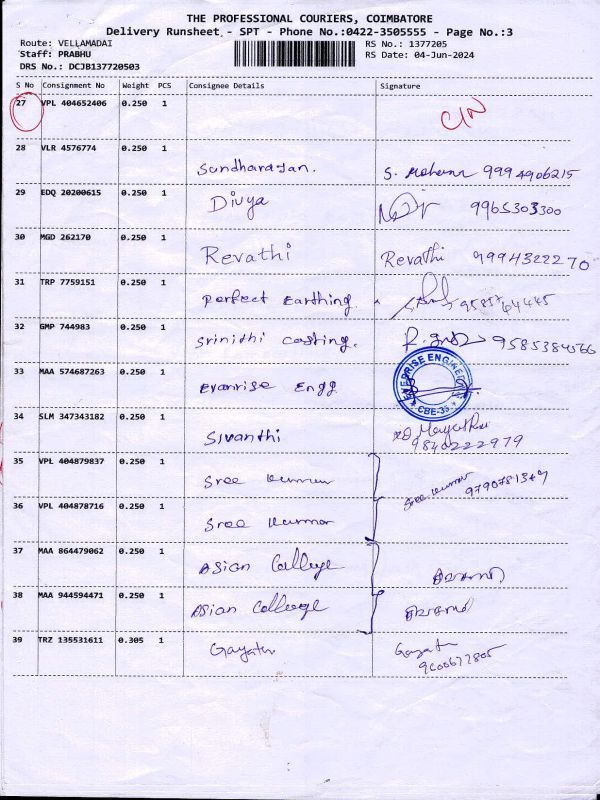 THE PROFESSIONAL COURIERS, COIMBATORE
Delivery Runsheet - SPT - Phone No.:0422-3505555 - Page No.:3
Route: VELLAMADAI RS No.: 1377205
Staff: PRABHU RS Date: 04-Jun-2024
DRS No.: DCJB137720503
S No Consignment No Weight PCS Consignee Details Signature
27 VPL 404652406 0.250 1 C/N
28 VLR 4576774 0.250 1
Sundharajan. S. Mohana 9994906215
29 EDQ 20200615 0.250 1
Divya 9965303300
30 MGD 262170 0.250 1
Revathi Revathi 9994322270
31 TRP 7759151 0.250 1
Perfect Earthing.
32 GMP 744983 0.250 1
Srinidhi Casting. 9585384566
33 MAA 574687263 0.250 1
Evanrise Engg
CBE-35
34 SLM 347343182 0.250 1
Sivanthi
9840222979
35 VPL 404879837 0.250 1
Sree Kumar Sree Kumar
36 VPL 404878716 0.250 1
Sree Kumar
37 MAA 864479062 0.250 1
Asian College
38 MAA 944594471 0.250 1
Asian College
39 TRZ 135531611 0.305 1
Gayatri Gayatri